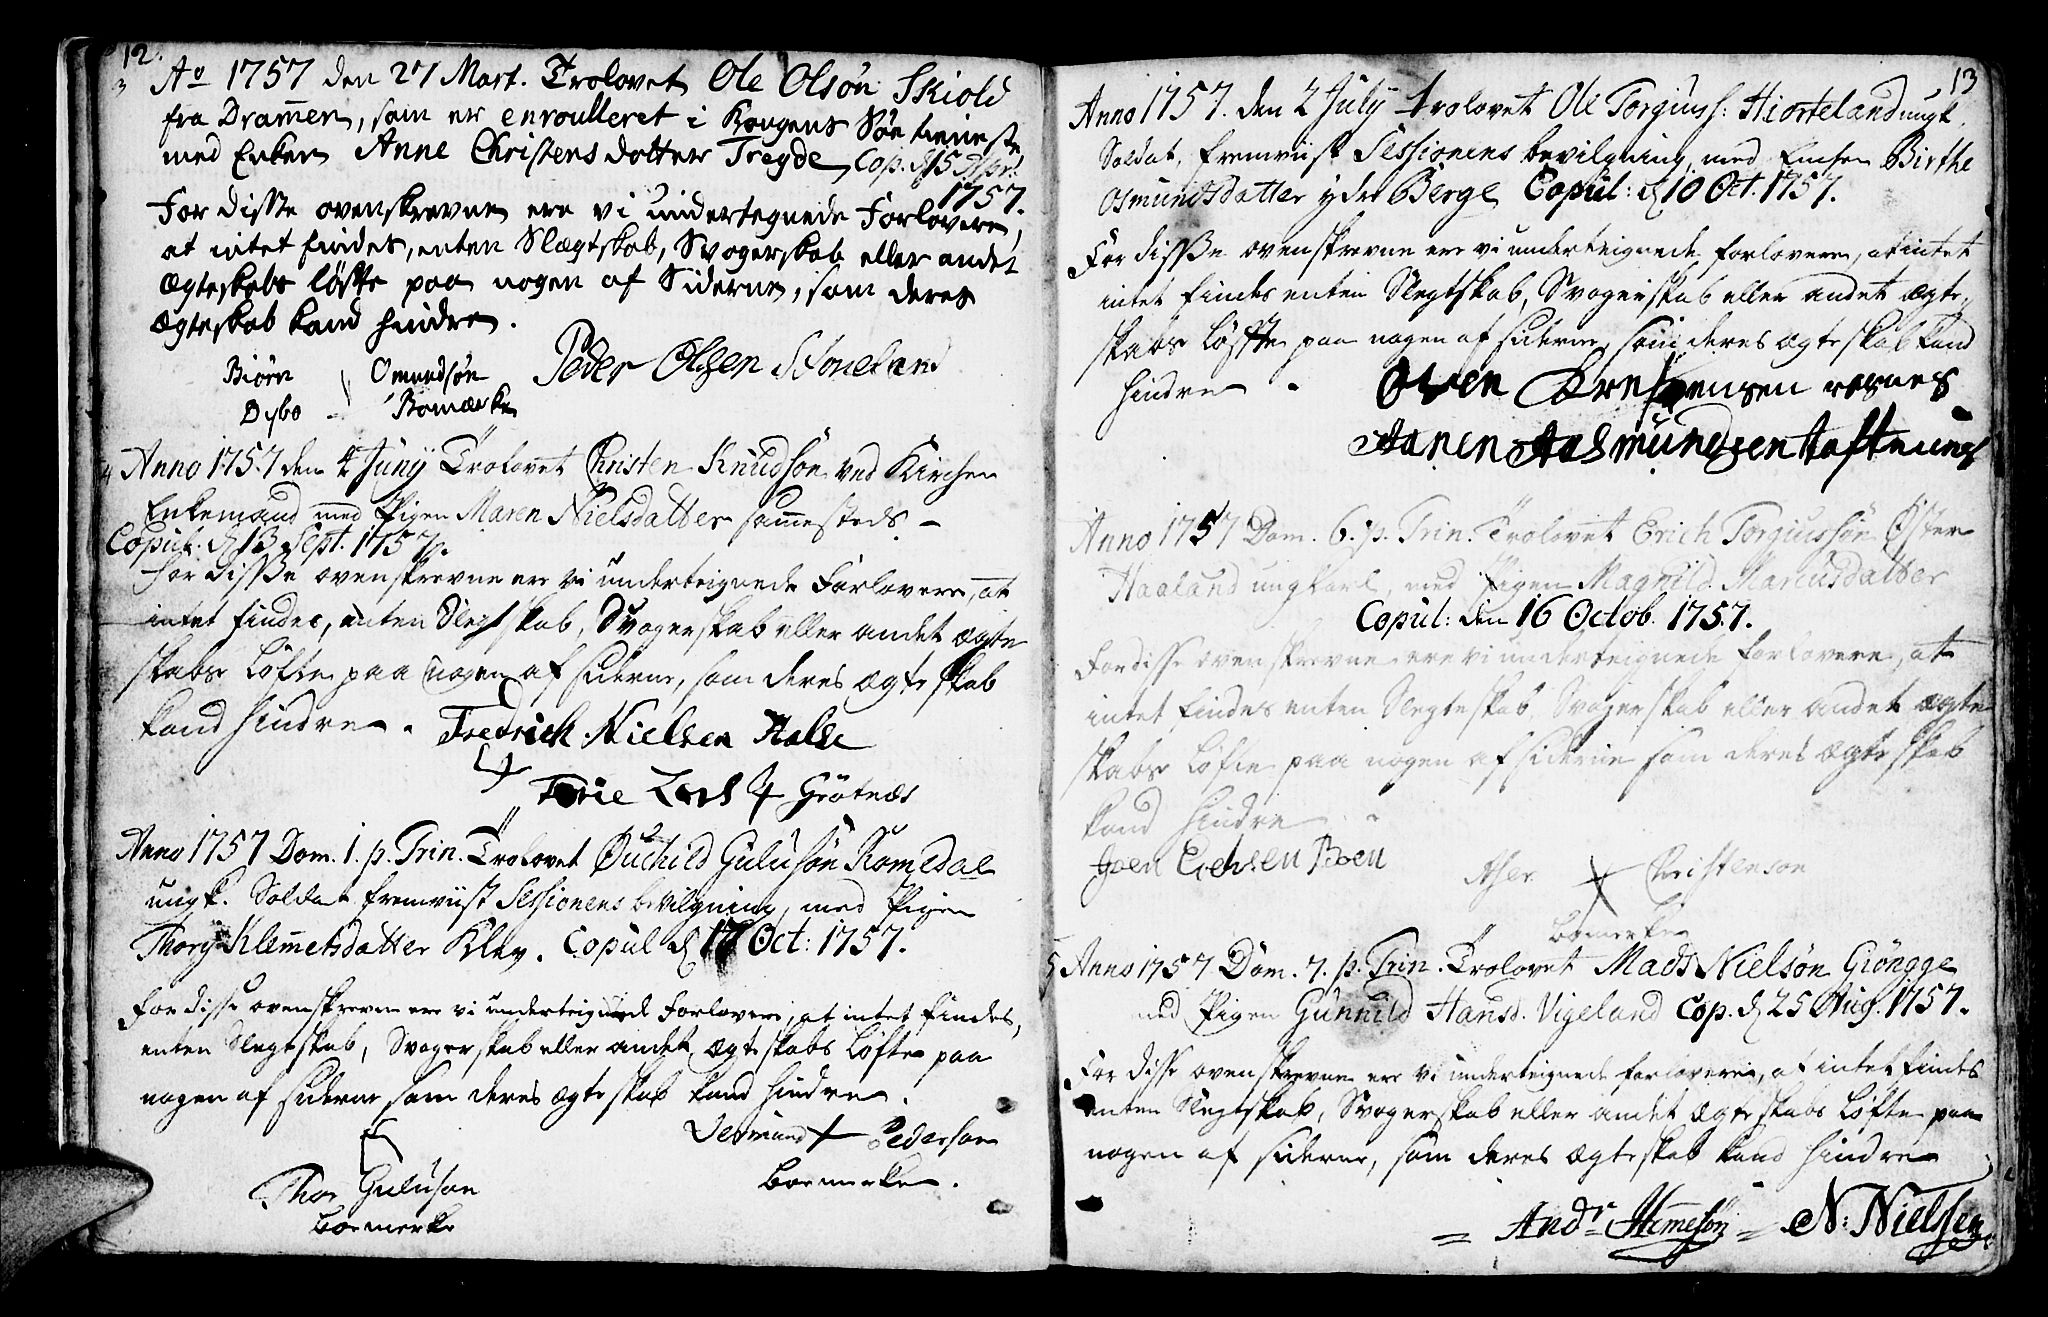 12.
3 Ao 1757 den 27 Mart. Trolovet Ole Olsøn Skiold
fra Dramen, som er enroulleret i Kongens Søe tieneste
med Enken Anne Christens dotter Tregde, Cop. d. 15 Apr:
1757.
For disse ovenskrevne ere vi undertegnede Forlovere,
at intet findes, enten Slægtskab, Svogerskab eller andet
Ægteskabs løfte paa nogen af Siderne, som deres
Ægteskab kand hindre.
Biørn Omundsøn Peder Olsen Stoneland
Dybo Bomærke
4 Anno 1757 den 4 Junij Trolovet Christen Knudsøn ved Kirchen
Enkemand med Pigen Maren Nielsdatter sammesteds.
Copul: d. 13 Sept. 1757.
For disse ovenskrevne ere vi underteignede Forlovere, at
intet findes, enten Slegtskab, Svogerskab eller andet ægte
skabs Løfte paa nogen af siderne, som deres ægteskab
kand hindre. Fredrich Nielsen Halse
Grötnæs
Anno 1757 Dom. 1. p. Trin. Trolovet Guluson Romedal
ungk. Soldat fremviist Sessionens bevilgning, med Pigen
Thory Klemetsdatter Klev. Copul d. 17 Oct: 1757.
For disse ovenskrevne ere vi underteignede Forlovere, at intet findes,
enten Slegtskab, Svogerskab eller andet ægteskabs Løfte paa
nogen af siderne som deres ægteskab kand hindre.
Pederson
Thor Guluson Boemerke.
Boemerke
13
Anno 1757. den 2 July trolovet Ole Torgiuss: Hiorteland ungk.
Soldat, fremviist Sessionens bevilgning, med Enchen Birthe
Osmundsdatter ydre Berge Copul: d. 10 Oct. 1757.
For disse ovenskrevne ere vi underteignede forlovere, at intet
intet findes enten Slegtskab, Svogerskab eller andet ægte
skabs Løffte paa nogen af siderne, som deres ægteskab kand
hindre.
Aanen Aasmundsen
Anno 1757 Dom. 6. p. Trin. Trolovet Erich Torgiussøn Øster
Haaland ungkarl, med Pigen Magnild Mariusdatter
Copul: den 16 Octob. 1757.
For disse ovenskrevne ere vi underteignede Forlovere, at
intet findes enten Slegteskab, Svogerskab eller andet ægte
skabs Løfte paa nogen af siderne som deres ægteskab
kand hindre.
Boen Christenson
Bomerke
5 Anno 1757 Dom. 7. p. Trin. Trolovet Mads Nielsøn Giöngge
med Pigen Gunnild Hansd. Vigeland Cop. d. 25 Aug. 1757.
For disse ovenskrevne ere vi underteignede forlovere, at intet findes
enten Slegtskab, Svogerskab eller andet ægteskabs Løfte paa
nogen af siderne, som deres ægteskab kand hindre
= Andr Jemesøn = N: Nielsen